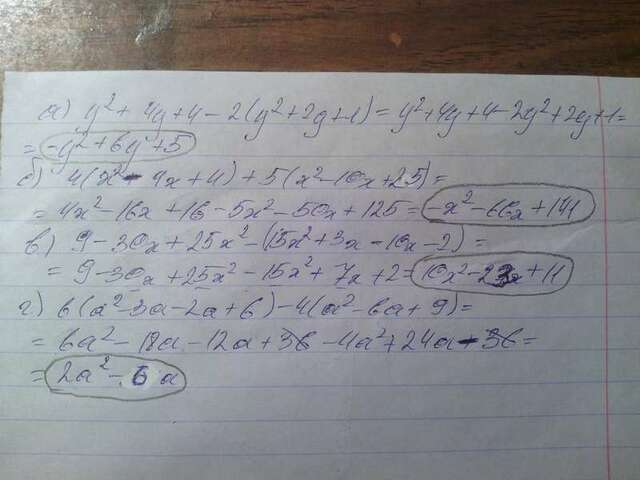 а) y² + 4y + 4 - 2(y² + 2y + 1) = y² + 4y + 4 - 2y² + 2y + 1 =
= -y² + 6y + 5
б) 4(x² - 4x + 4) + 5(x² - 10x + 25) =
= 4x² - 16x + 16 - 5x² - 50x + 125 = -x² - 66x + 141
в) 9 - 30x + 25x² - (15x² + 3x - 10x - 2) =
= 9 - 30x + 25x² - 15x² + 7x + 2 = 10x² - 23x + 11
г) 6(a² - 3a - 2a + 6) - 4(a² - 6a + 9) =
= 6a² - 18a - 12a + 36 - 4a² + 24a - 36 =
= 2a² - 6a